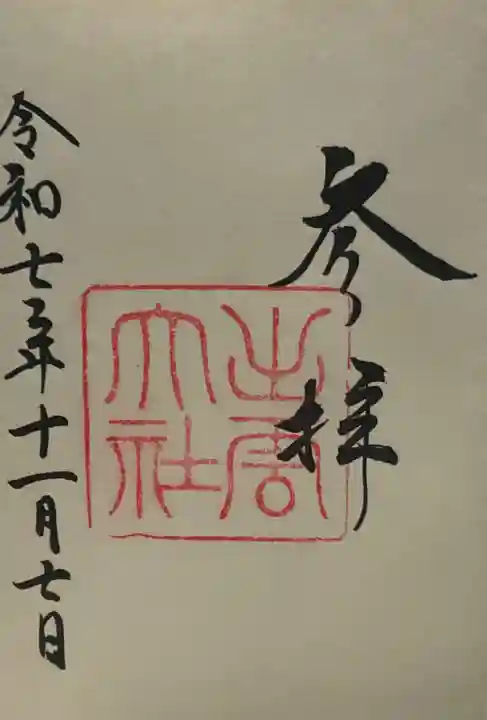 参拝
出雲大社
令和七年十一月七日